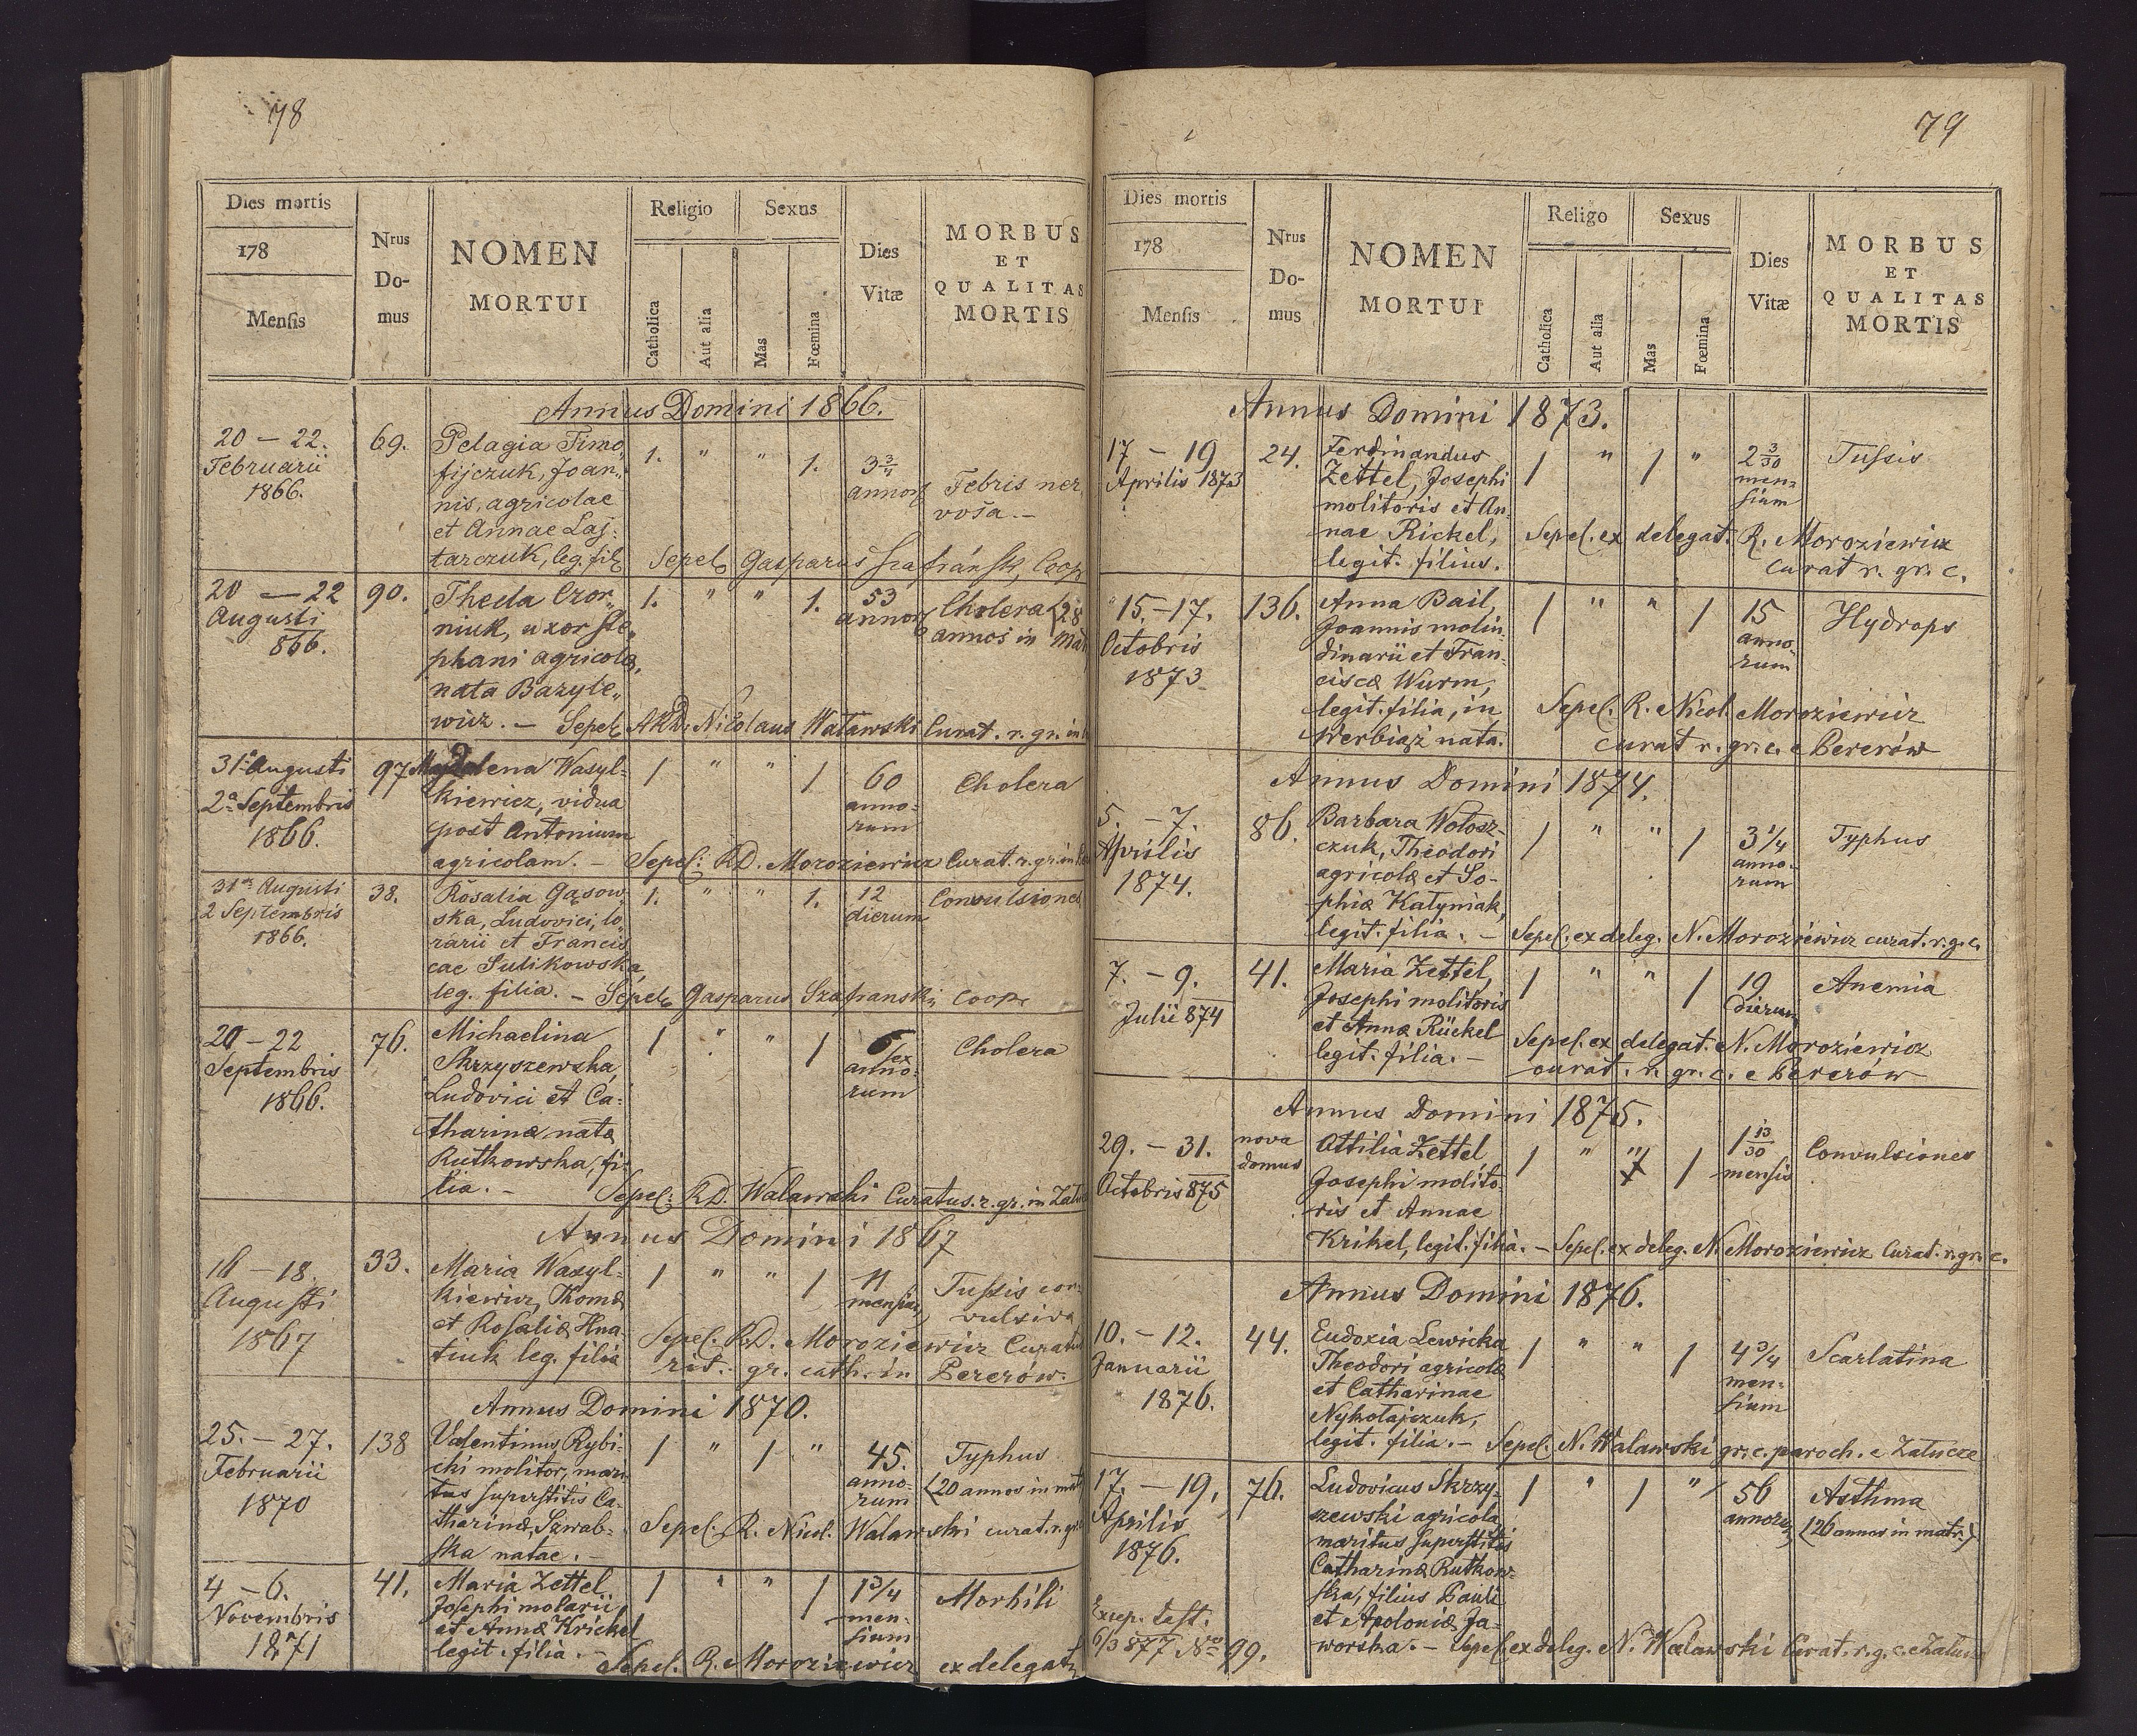 78
Dies mortis
178
Mensis
Nrus
Do-
mus
NOMEN
MORTUI
Religio
Catholica
Aut alia
Sexus
Mas
Fœmina
Dies
Vitæ
MORBUS
ET
QUALITAS
MORTIS
Annus Domini 1866.
20 — 22.
Februarii
1866.
69.
Pelagia Timo„
fijczuk, Joan„
nis, agricolae
et Annae Laj„
tarczuk, leg. fil.
1. " " 1.
3 3/4
annor.
Febris ner„
vosa. —
Sepel. Gasparus Szafránsk, Coop
20 — 22
Augusti
866.
90.
Thecla Czor„
niuk, uxor Ste„
phani agricolæ,
nata Bazyle„
wicz. — Sepel. ARD. Nicolaus Waławski Curat. r. gr. in
1. " " 1.
53
annor.
Cholera (28
annos in mat
31a Augusti
2a Septembris
1866.
97
Magdalena Wasyl-
kiewicz, vidua
post Antonium
agricolam. — Sepel: RD. Moroziewicz Curat. r. gr. in
1 " " 1
60
anno-
rum
Cholera
31 Augusti
2 Septembris
1866.
38.
Rosalia Gąsow„
ska, Ludovici, lo„
rarii et Francis
cae Sulikowska,
leg. filia. — Sepel. Gasparus Szafranski, Coop.
1. " " 1.
12
dierum
Convulsiones
20 — 22
Septembris
1866.
76.
Michaelina
Skrzyszewska,
Ludovici et Ca-
tharinæ natæ
Rutkowska, fi-
lia. — Sepel: RD. Walawski Curatus. r. gr. in Zału
1 " " 1
6 sex
anno-
rum
Cholera
Annus Domini 1867
16 — 18.
Augusti
1867
33.
Maria Wasyl-
kiewicz, Thomæ
et Rosaliæ Hna-
tiuk leg. filia
1 " " 1
11
mensium
Tussis con-
vulsiva
Sepel. R.D. Moroziewicz Curatus
rit. gr. cath. in Berezów.
Annus Domini 1870.
25. — 27.
Februarii
1870
138
Valentinus Rybi-
cki molitor, mari-
tus superstitis Ca-
tharinæ, Szwab-
ska natae. —
1 " 1 "
45.
anno-
rum
Typhus
(20 annos in mat
Sepel. R. Nicol. Walawski curat. r. gr.
4 — 6.
Novembris
1871
41.
Maria Zettel,
Josephi molarii,
et Annæ Krickel
legit. filia. —
1 " " 1
1 3/4
men-
sium
Morbili
Sepel. R. Moroziewicz ex delegat.
79
Dies mortis
178
Mensis
Nrus
Do-
mus
NOMEN
MORTUI
Religo
Catholica
Aut alia
Sexus
Mas
Fœmina
Dies
Vitæ
MORBUS
ET
QUALITAS
MORTIS
Annus Domini 1873.
17 — 19
Aprilis 1873
24.
Ferdinandus
Zettel, Josephi
molitoris et An-
nae Rickel,
legit. filius.
1 " 1 "
2 3/30
men-
sium
Tussis
Sepel. ex delegat. R. Moroziewicz
curat r. gr. c.
15. — 17.
Octobris
1873
136.
Anna Bail,
Joannis molin-
dinarii et Fran-
ciscæ Wurm,
legit. filia, in
Werbiąż nata.
1 " " 1
15
anno-
rum
Hydrops
Sepel. R. Nicol. Moroziewicz
curat r. gr. c. e Berezów
Annus Domini 1874.
5. — 7.
Aprilis
1874.
86.
Barbara Wołosz-
czuk, Theodori
agricolæ et So-
phiæ Katyniak,
legit. filia. — Sepel. ex deleg. N. Moroziewicz curat. r. g. c.
1 " " 1
3 1/4
anno-
rum
Typhus
7. — 9.
Julii 874
41.
Maria Zettel,
Josephi molitoris
et Annæ Rückel
legit. filia. —
1 " " 1
19
dierum
Anemia
Sepel. ex delegat. N. Moroziewicz
curat. r. gr. c. e Berezów
Annus Domini 1875.
29. — 31.
Octobris 875
nova
domus
Attilia Zettel
Josephi molito-
ris et Annae
Krikel, legit. filia. — Sepel. ex deleg. N. Moroziewicz Curat. r. gr. c.
1 " " 1
1 13/30
mensis
Convulsiones
Annus Domini 1876.
10. — 12.
Januarii
1876.
44.
Eudoxia Lewicka
Theodori agricolæ
et Catharinae
Nykołajczuk,
legit. filia. — Sepel. N. Walawski gr. c. paroch. e Załucze
1 " " 1
4 3/4
men-
sium
Scarlatina
17. — 19.
Aprilis
1876.
76.
Ludovicus Skrzy-
szewski agricola,
maritus superstitis
Catharinæ Rutkow-
ska, filius Pauli
et Apoloniæ Ja-
worska. — Sepel. ex deleg. N. Walawski Curat. r. g. c. e Załucze
1 " 1 "
56
annorum
Asthma
(26 annos in matr.)
Excep. test.
6/3 877 No 99.